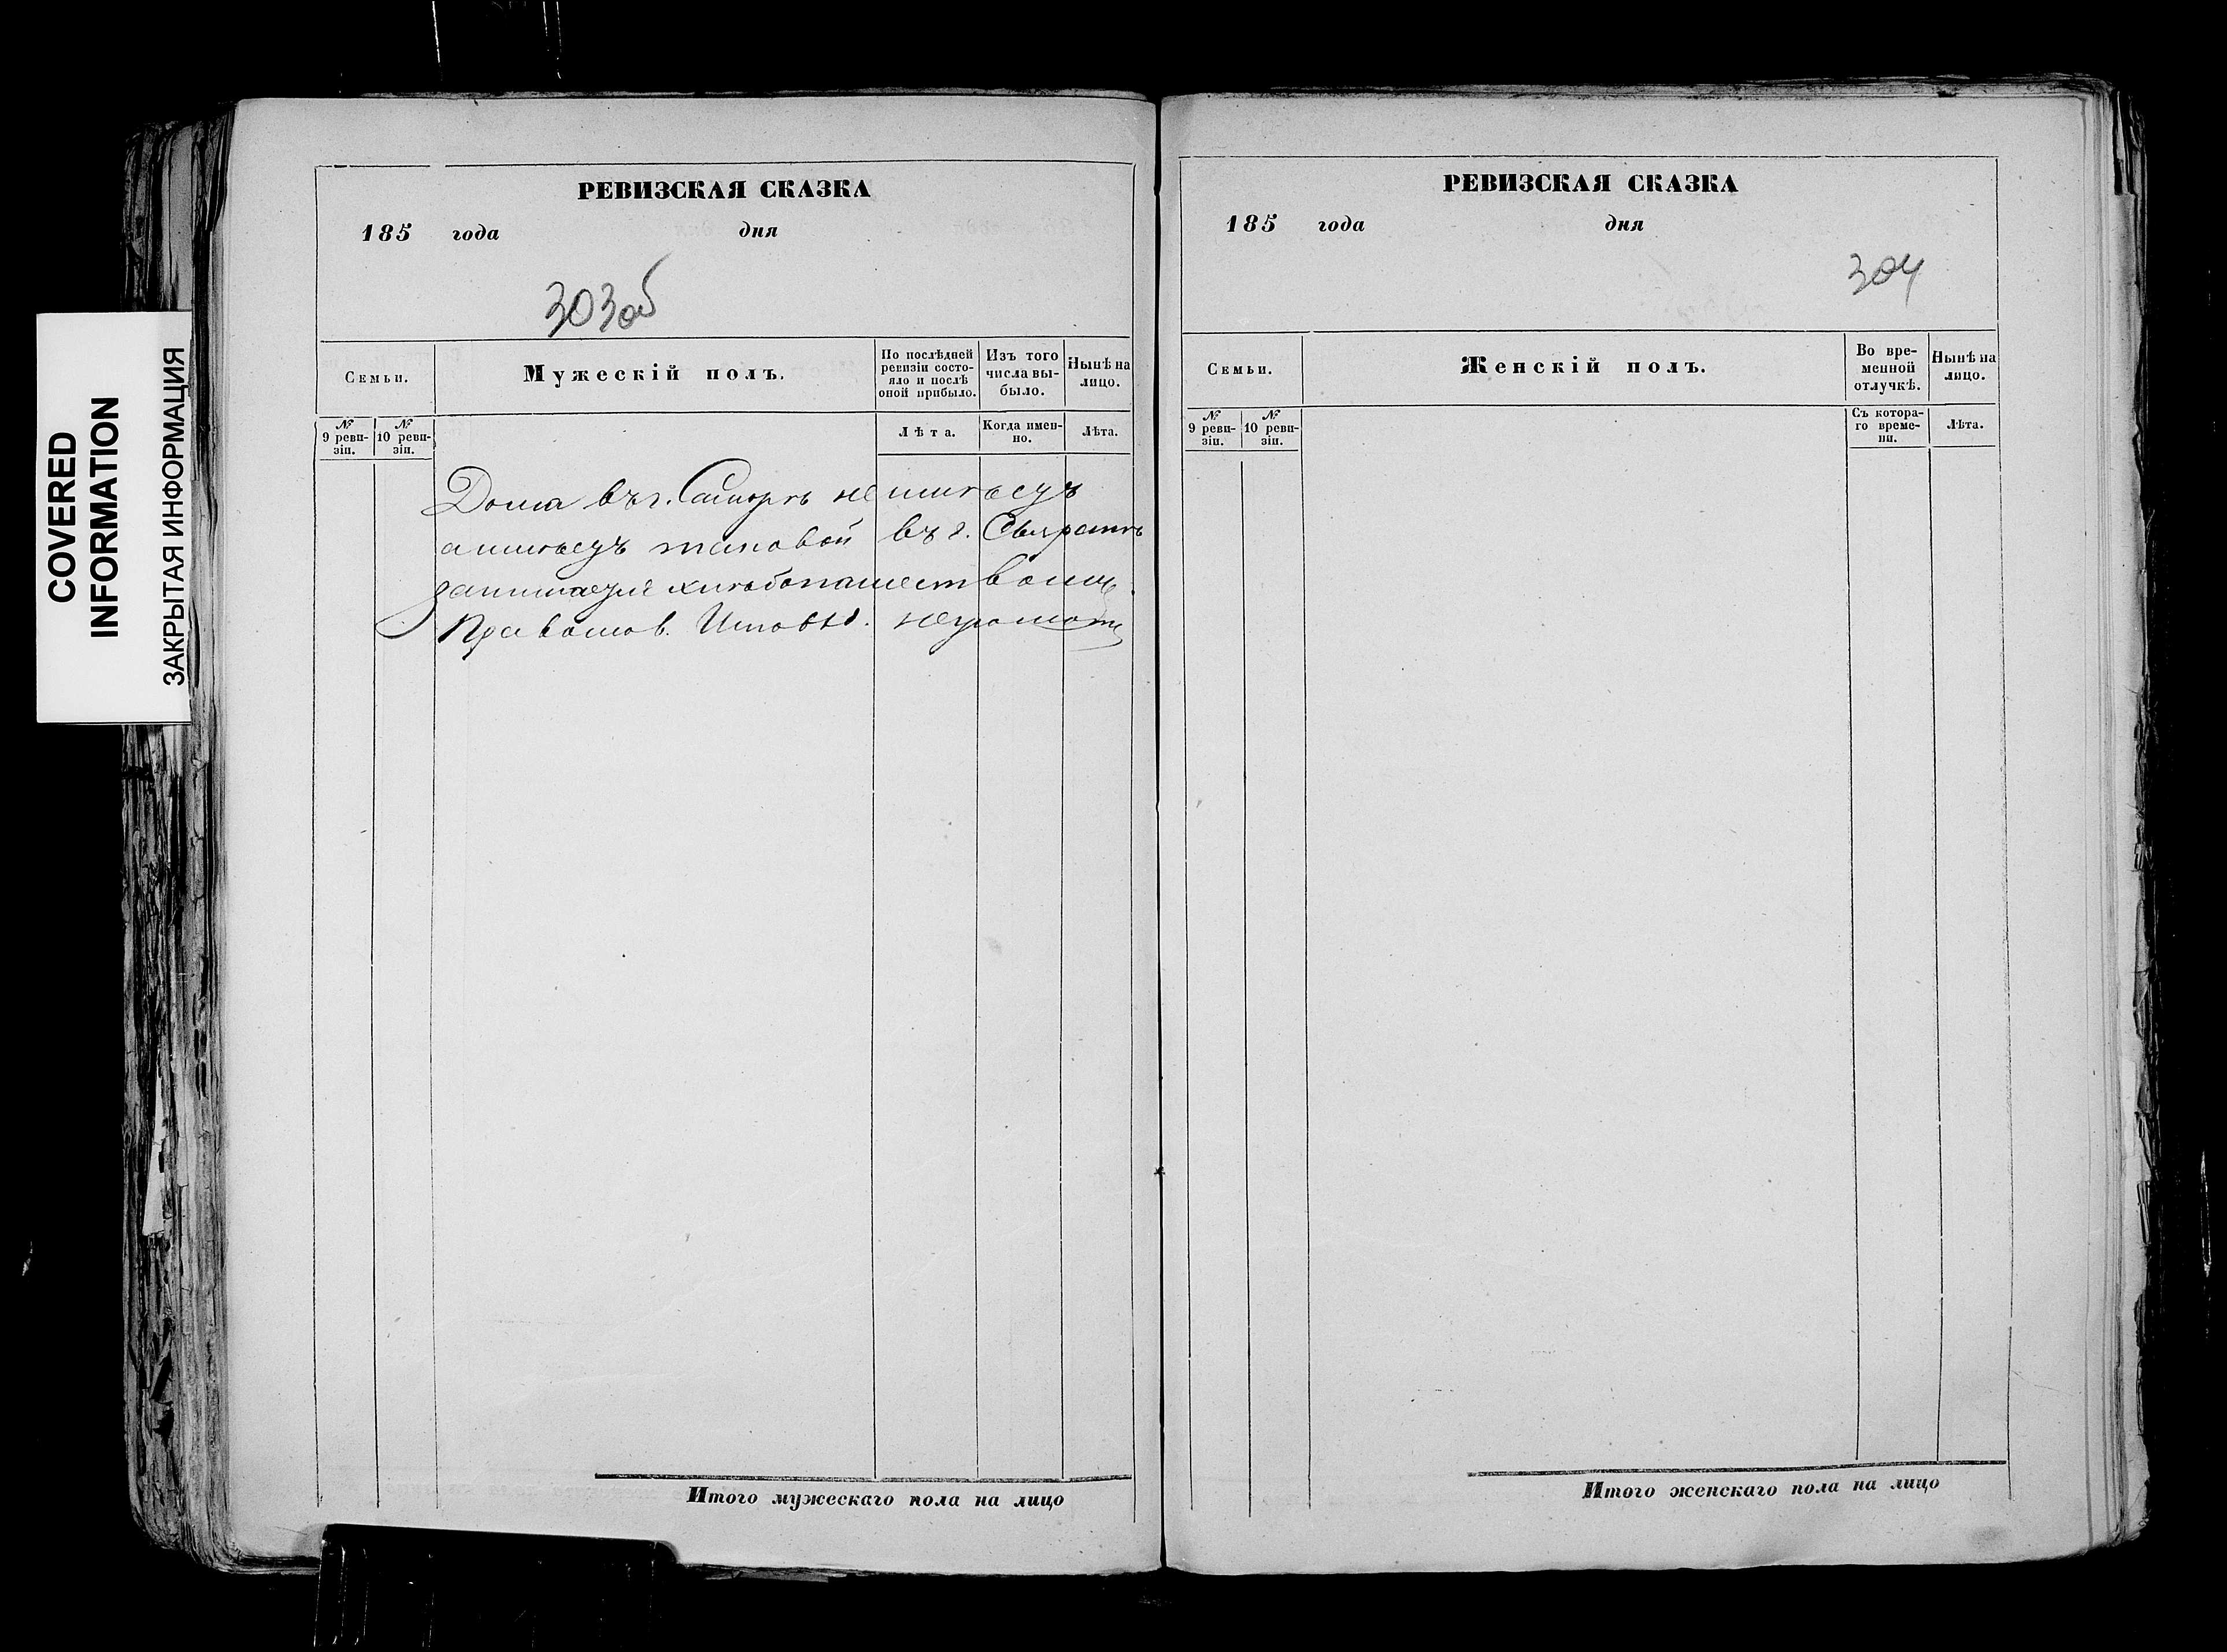 COVERED
INFORMATION
ЗАКРЫТАЯ ИНФОРМАЦИЯ
РЕВИЗСКАЯ СКАЗКА
185 года дня
303об
Семьи.
Мужескій полъ.
По послѣдней
ревизіи состо-
яло и послѣ
оной прибыло.
Изъ того
числа вы-
было.
Нынѣ на
лицо.
№
9 реви-
зіи.
№
10 реви-
зіи.
Лѣта.
Когда имен-
но.
Лѣта.
Дома въ г. Самарѣ не имѣетъ
а имѣетъ таковой въ г.
занимается хлѣбопашествомъ
Православ. Исповѣд. неграмот
Итого мужескаго пола на лицо
РЕВИЗСКАЯ СКАЗКА
185 года дня
304
Семьи.
Женскій полъ.
Во вре-
менной
отлучкѣ.
Нынѣ на
лицо.
№
9 реви-
зіи.
№
10 реви-
зіи.
Съ котора-
го време-
ни.
Лѣта.
Итого женскаго пола на лицо